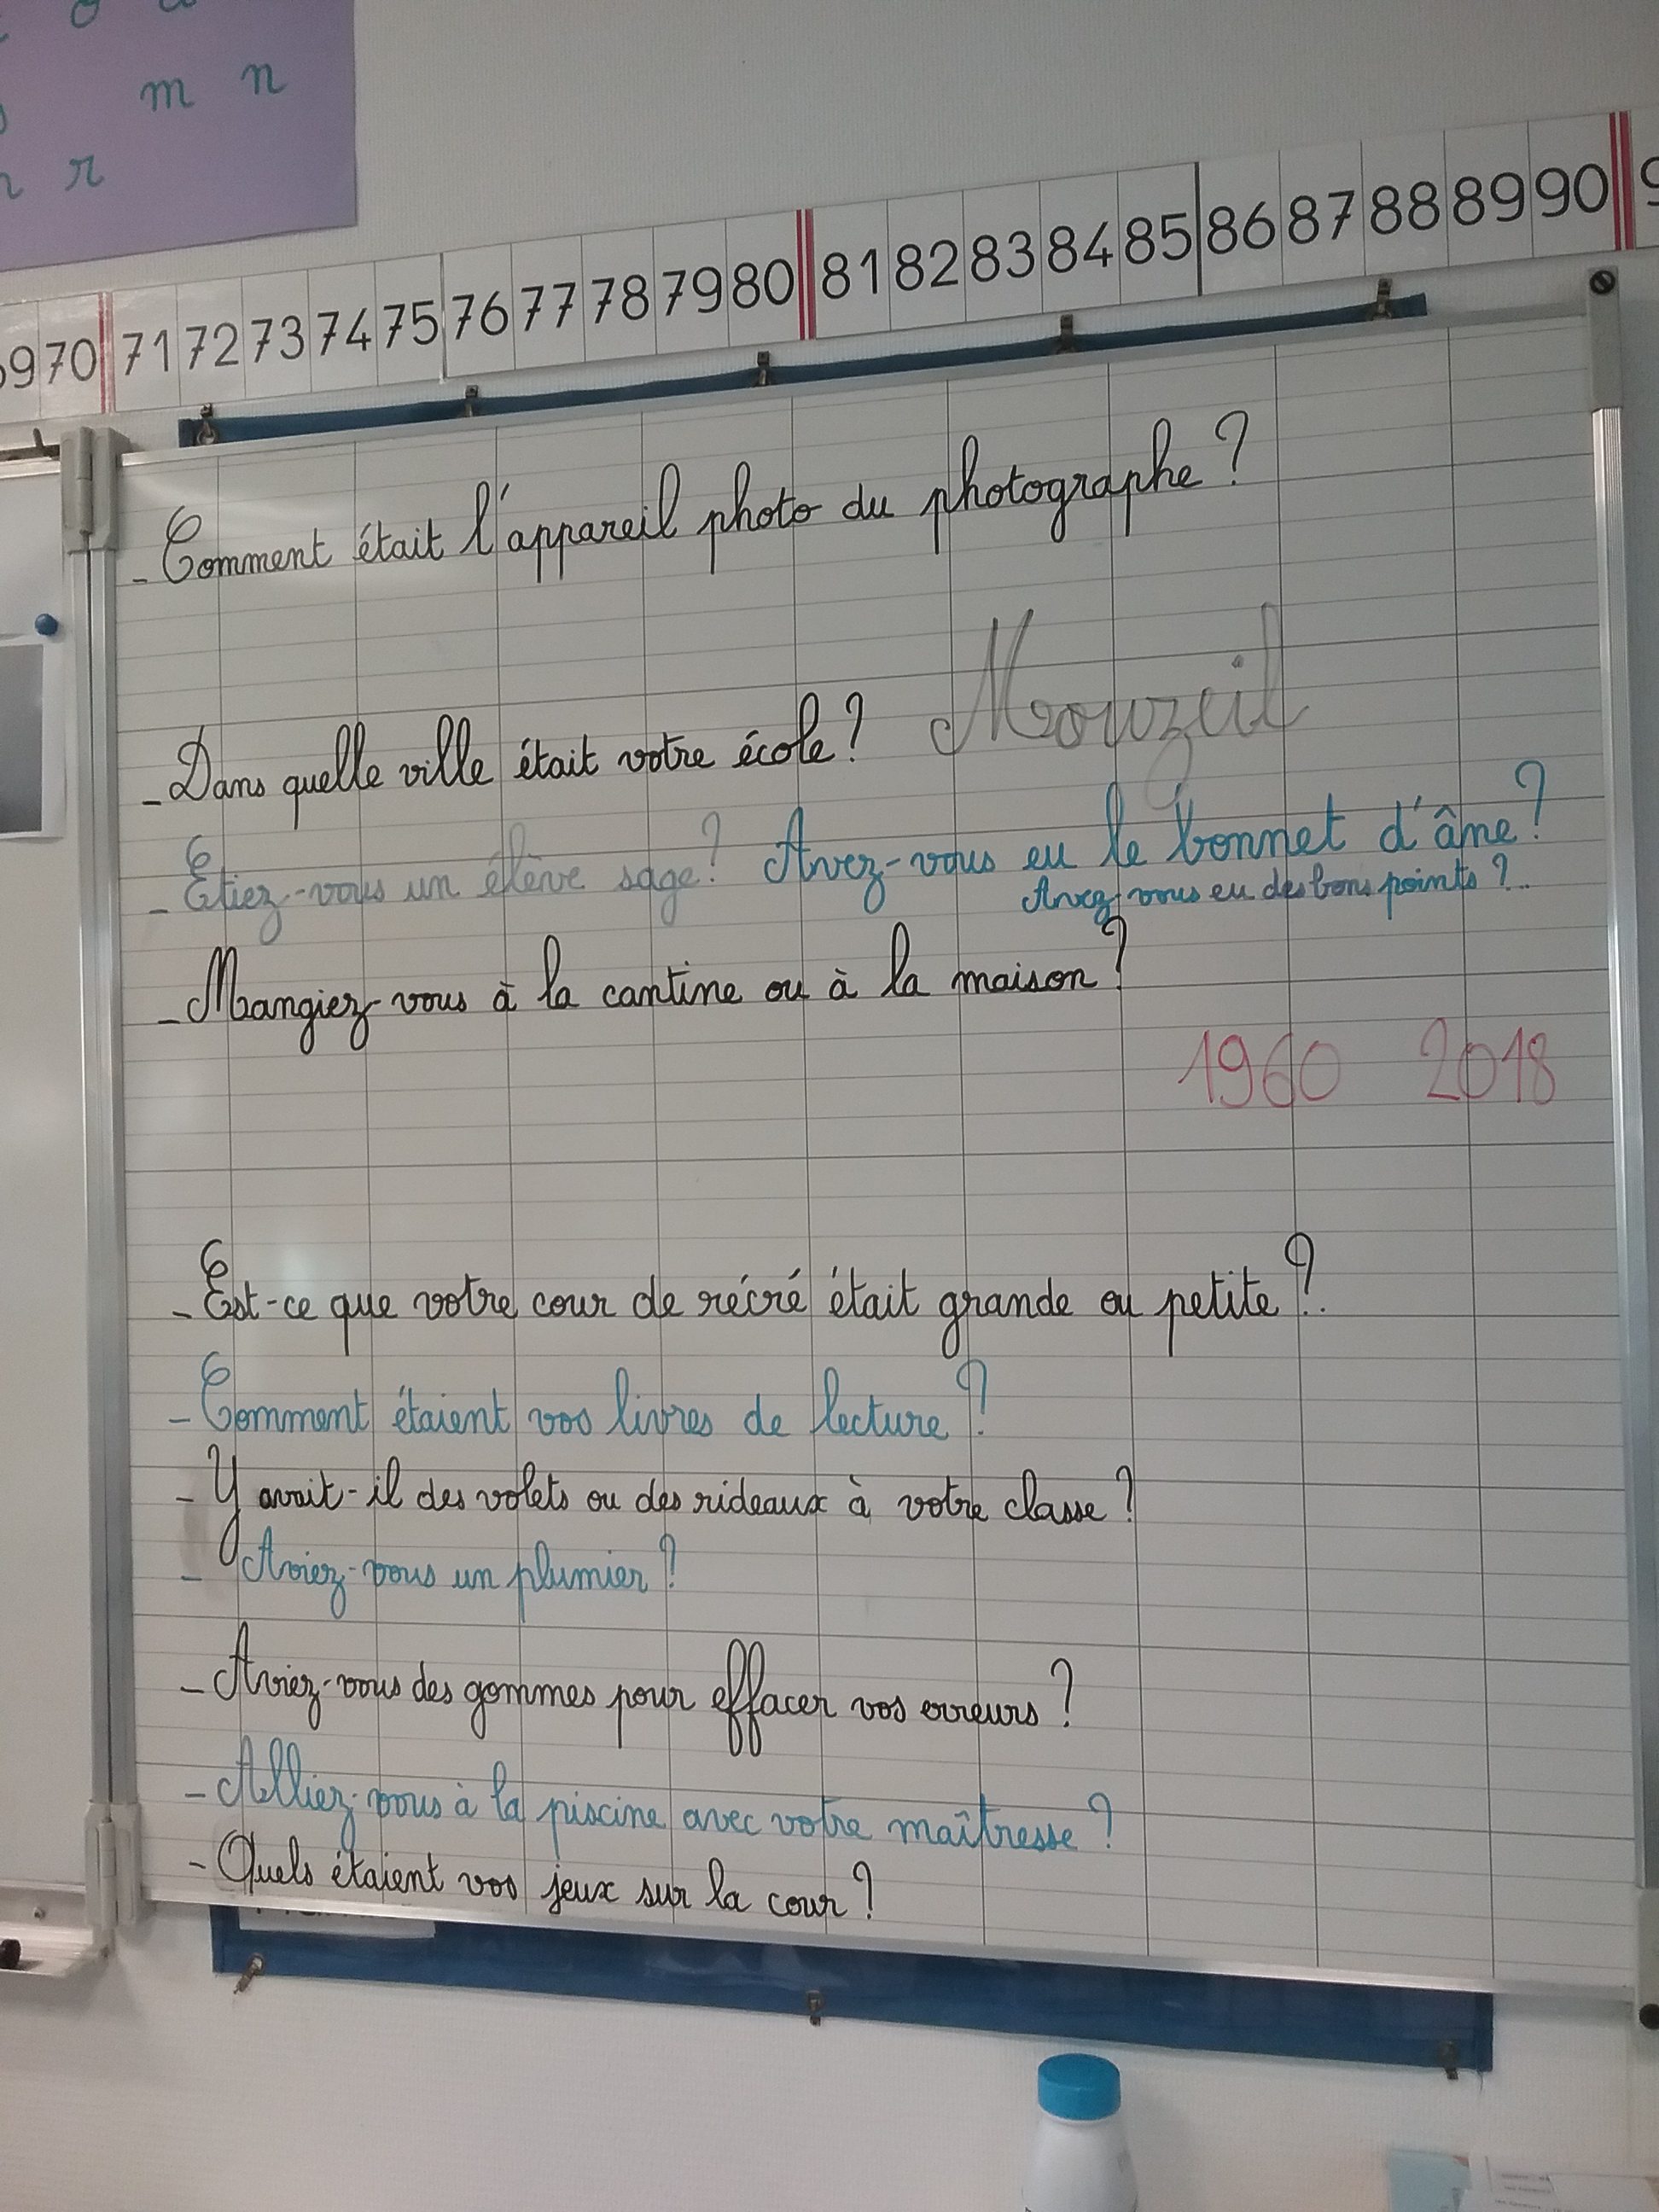 m n
r
970 71 72 73 74 75 76 77 78 79 80 81 82 83 84 85 86 87 88 89 90 9
- Comment était l'appareil photo du photographe ?
- Dans quelle ville était votre école ? Mouzeil
- Etiez-vous un élève sage ? Avez-vous eu le bonnet d'âne ?
Avez-vous eu des bons points ?
- Mangiez-vous à la cantine ou à la maison ?
1960 2018
- Est-ce que votre cour de récré était grande ou petite ?
- Comment étaient vos livres de lecture ?
- Y avait-il des volets ou des rideaux à votre classe ?
- Aviez-vous un plumier ?
- Aviez-vous des gommes pour effacer vos erreurs ?
- Alliez-vous à la piscine avec votre maîtresse ?
- Quels étaient vos jeux sur la cour ?